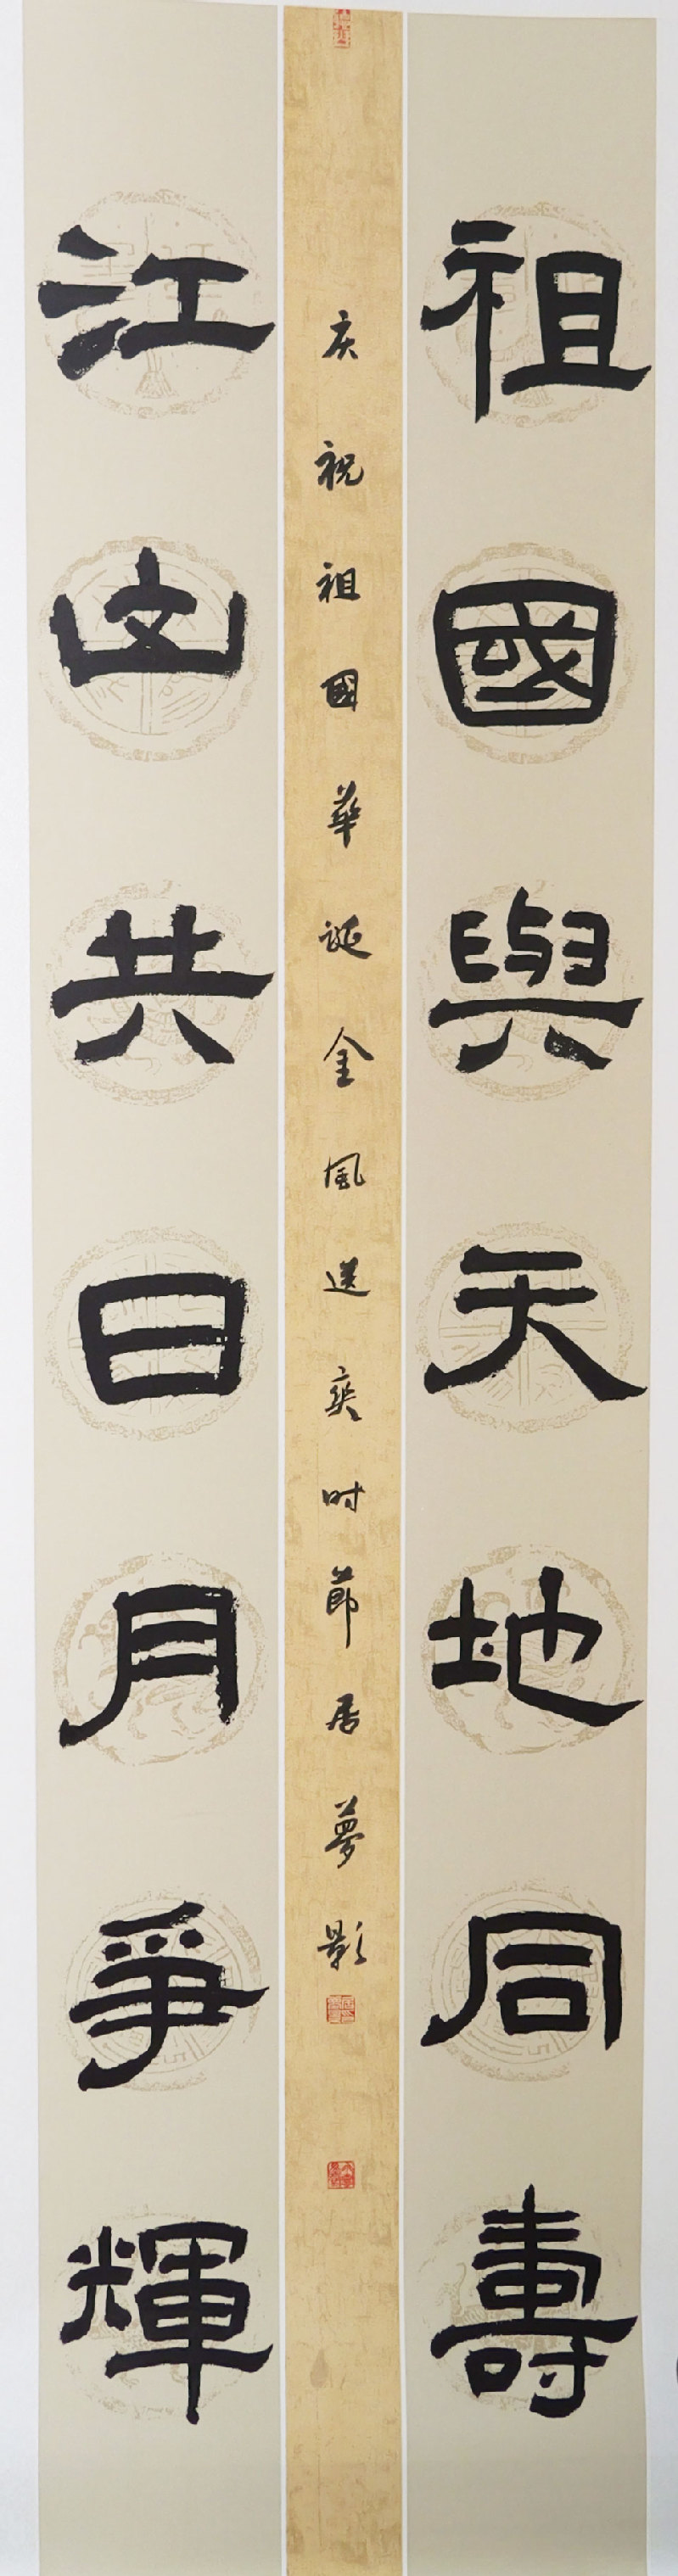 祖國與天地同壽
江山共日月爭輝
庆祝祖國華誕金風送爽时節居夢影